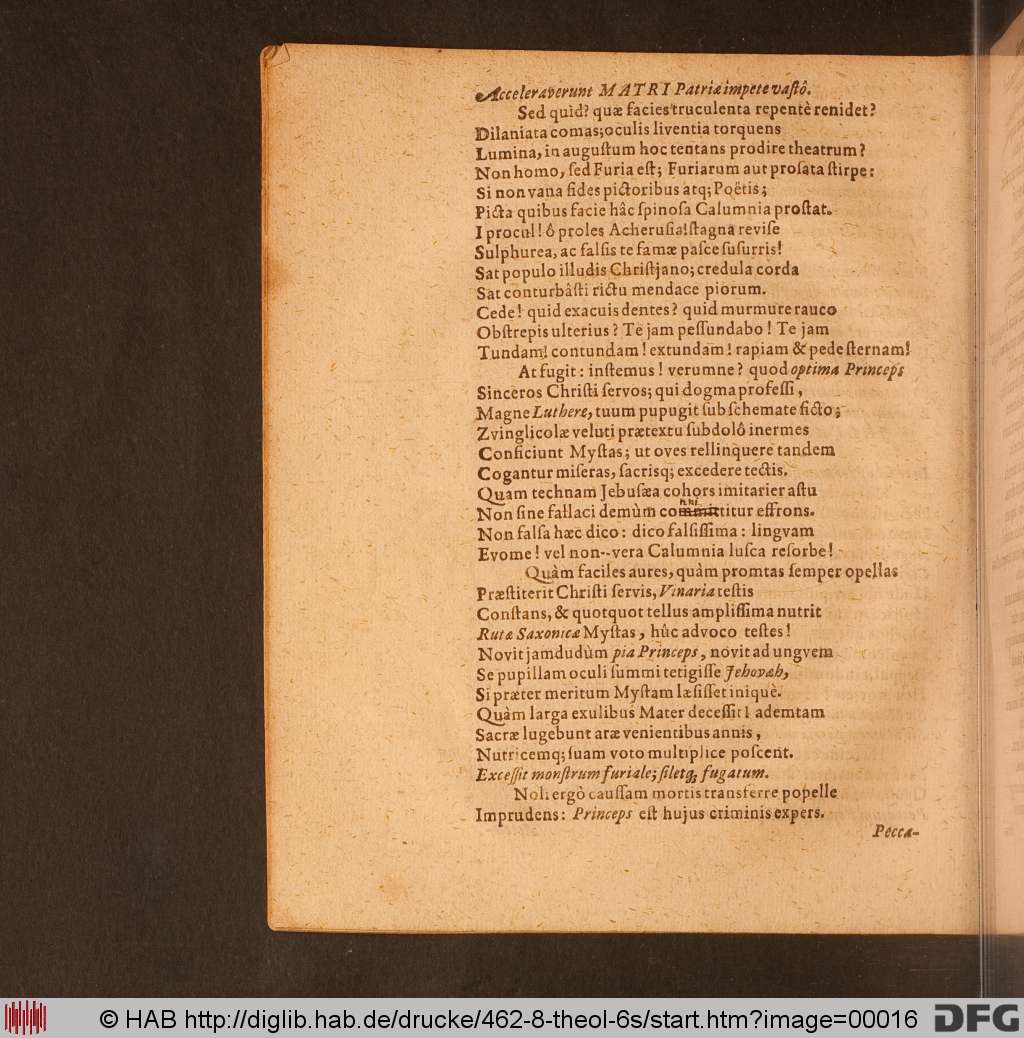 Acceleraverunt MATRI Patriæ impete vaſtô.
Sed quid? quæ facies truculenta repentè renidet?
Dilaniata comas; oculis liventia torquens
Lumina, in auguſtum hoc tentans prodire theatrum?
Non homo, ſed Furia eſt; Furiarum aut proſata ſtirpe:
Si non vana fides pictoribus atq; Poëtis;
Picta quibus facie hâc ſpinoſa Calumnia proſtat.
I procul! ô proles Acheruſia! ſtagna reviſe
Sulphurea, ac falſis te famæ paſce ſuſurris!
Sat populo illudis Chriſtjano; credula corda
Sat conturbâſti rictu mendace piorum.
Cede! quid exacuis dentes? quid murmure rauco
Obſtrepis ulterius? Te jam peſſundabo! Te jam
Tundam! contundam! extundam! rapiam & pede ſternam!
At fugit: inſtemus! verumne? quod optima Princeps
Sinceros Chriſti ſervos; qui dogma profeſſi,
Magne Luthere, tuum pupugit ſub ſchemate ficto;
Zvinglicolæ veluti prætextu ſubdolô inermes
Conficiunt Myſtas; ut oves rellinquere tandem
Cogantur miſeras, ſacrisq; excedere tectis.
Quam technam Jebuſæa cohors imitarier aſtu
Non ſine fallaci demùm committitur effrons.
Non falſa hæc dico: dico falſiſſima: lingvam
Evome! vel non--vera Calumnia luſca reſorbe!
Quàm faciles aures, quàm promtas ſemper opellas
Præſtiterit Chriſti ſervis, Vinaria teſtis
Conſtans, & quotquot tellus ampliſſima nutrit
Rutæ Saxonicæ Myſtas, hûc advoco teſtes!
Novit jamdudùm pia Princeps, novit ad ungvem
Se pupillam oculi ſummi tetigiſſe Jehovah,
Si præter meritum Myſtam læſiſſet iniquè.
Quàm larga exulibus Mater deceſſit! ademtam
Sacræ lugebunt aræ venientibus annis,
Nutricemq; ſuam voto multiplice poſcent.
Exceſſit monſtrum furiale; ſiletq; fugatum.
Noli ergò cauſſam mortis transferre popelle
Imprudens: Princeps eſt hujus criminis expers.
Pecca-
© HAB http://diglib.hab.de/drucke/462-8-theol-6s/start.htm?image=00016
DFG